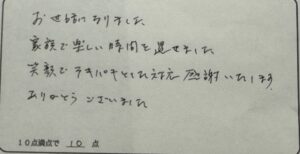 お世話になりました
家族で楽しい時間を過せました
笑顔でテキパキとした対応 感謝いたします
ありがとうございました
10点満点で 10 点